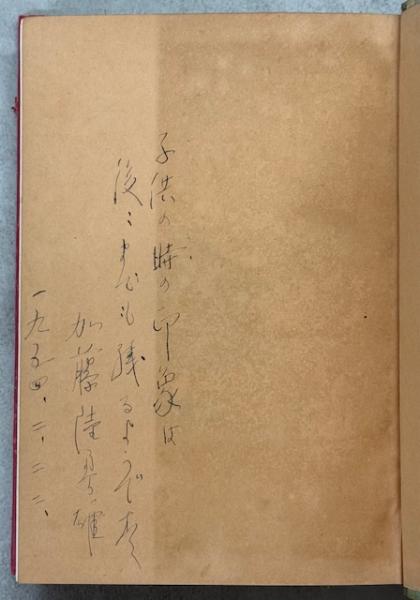 子供の時の印象は
後々までも残るようである
加藤陸奥雄
一九五四、二、二二、